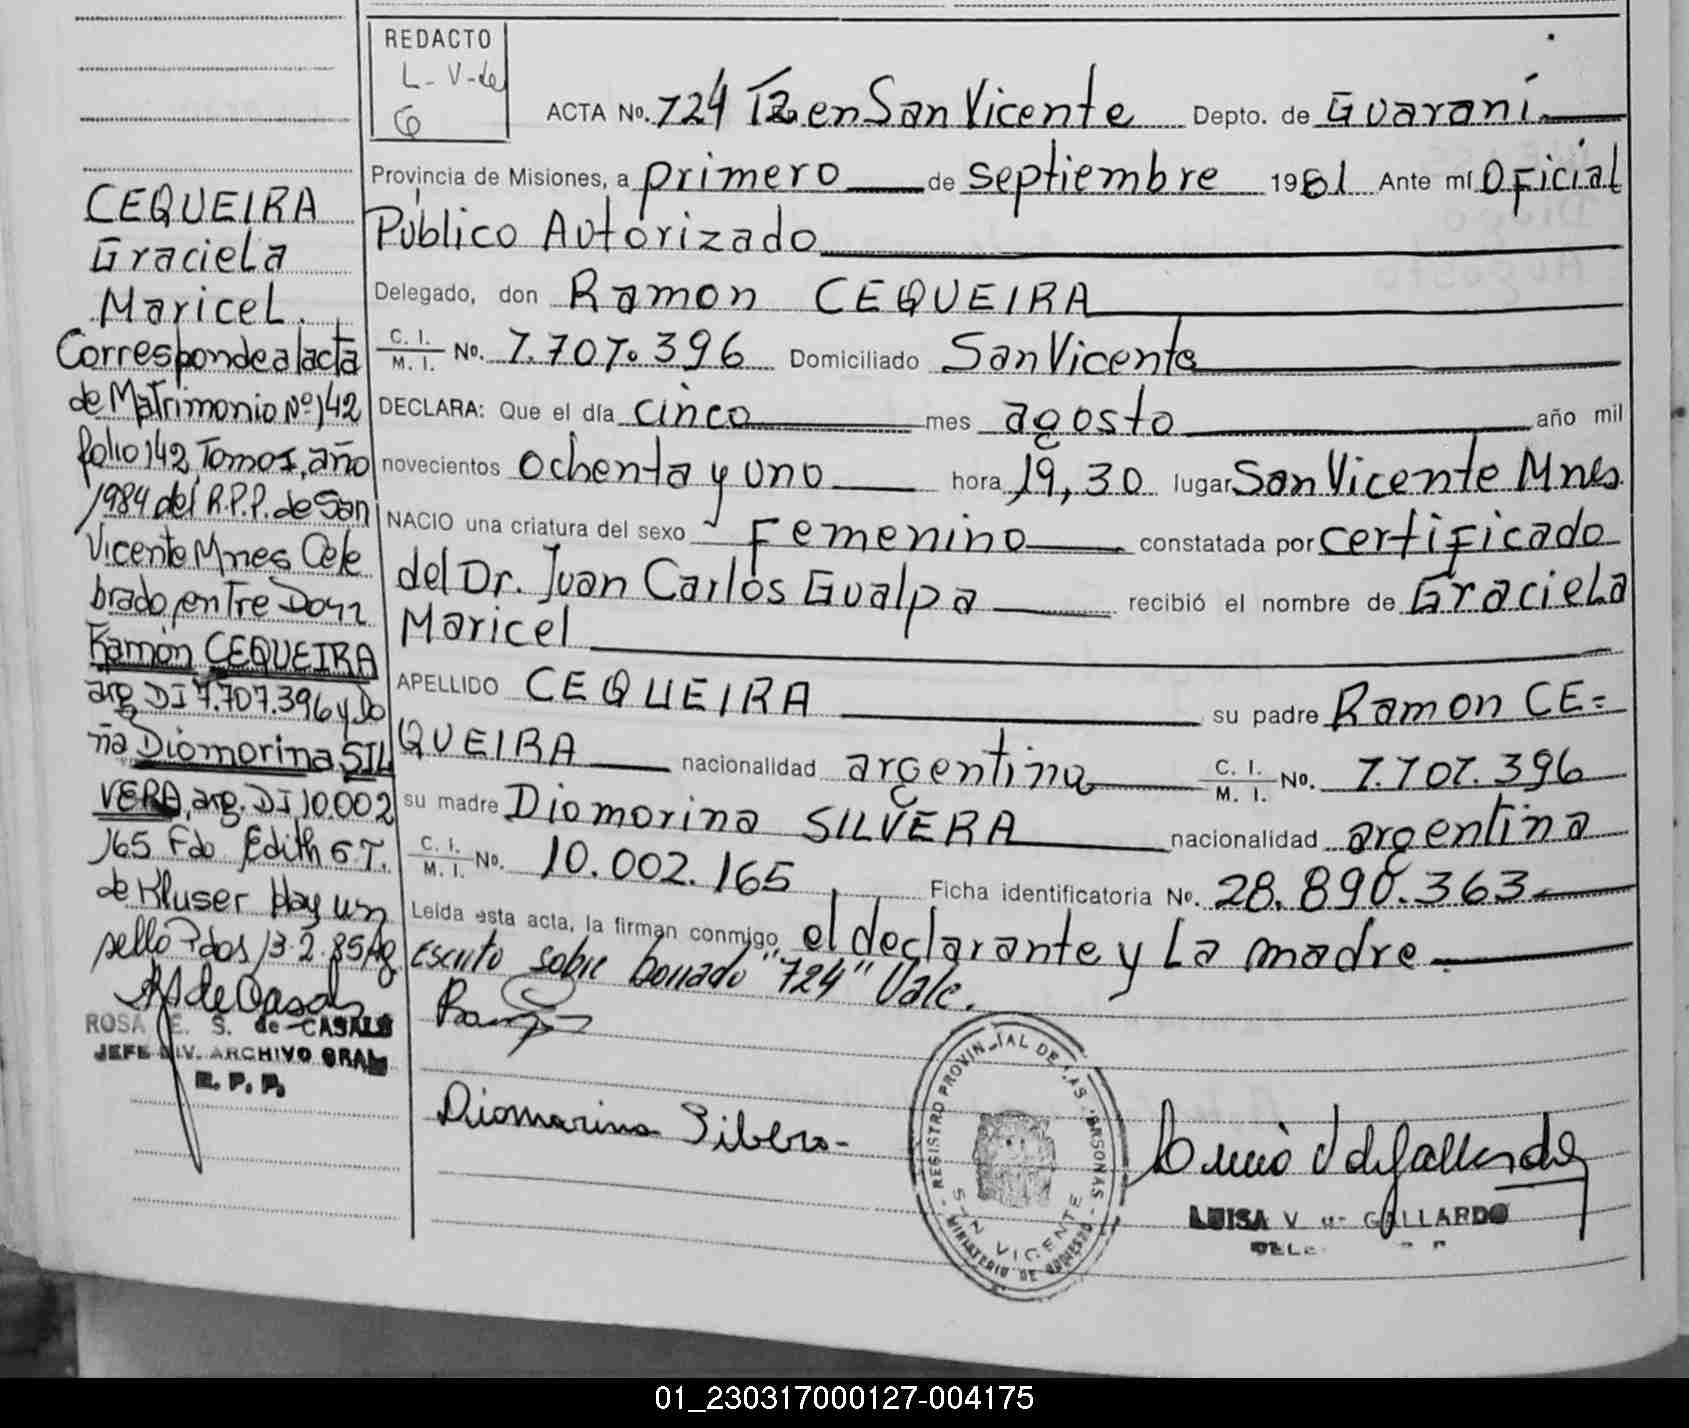 REDACTO
L-V-de
G
ACTA No. 724 Tz en San Vicente Depto. de Guaraní
Provincia de Misiones, a primero de septiembre 1981 Ante mí Oficial
Público Autorizado
Delegado, don Ramon CEQUEIRA
C. I.
M. I. No. 7.707.396 Domiciliado San Vicente
DECLARA: Que el día cinco mes agosto año mil
novecientos ochenta y uno hora 19,30 lugar San Vicente Mnes.
NACIO una criatura del sexo Femenino constatada por certificado
del Dr. Juan Carlos Gualpa recibió el nombre de Graciela
Maricel
APELLIDO CEQUEIRA su padre Ramon CE=
QUEIRA nacionalidad argentina C. I.
M. I. No. 7.707.396
su madre Diomorina SILVERA nacionalidad argentina
C. I.
M. I. No. 10.002.165 Ficha identificatoria No. 28.890.363
Leída esta acta, la firman conmigo, el declarante y La madre
Escrito sobre borrado "724" Vale.
Diomarina Silbera
REGISTRO PROVINCIAL DE LAS PERSONAS
SAN VICENTE
MINISTERIO DE GOBIERNO
LUISA V. de GALLARDO
CEQUEIRA
Graciela
Maricel.
Corresponde al acta
de Matrimonio Nº 142
folio 142, Tomo I, año
1984 del R.P.P. de San
Vicente Mnes Cele
brado, entre Don
Ramón CEQUEIRA
arg. DI 7.707.396 y Do
ña Diomorina SIL
VERA, arg. DI 10.002
165 Fdo Edith G T.
de Kluser Hay un
sello Pdas 13.2.85
ROSA E. S. de CASALS
JEFE DIV. ARCHIVO GRAL
R. P. P.
01_230317000127-004175